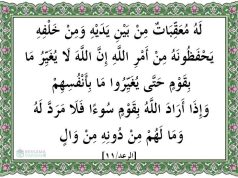 لَهُ مُعَقِّبَاتٌ مِنْ بَيْنِ يَدَيْهِ وَمِنْ خَلْفِهِ
يَحْفَظُونَهُ مِنْ أَمْرِ اللَّهِ إِنَّ اللَّهَ لَا يُغَيِّرُ مَا
بِقَوْمٍ حَتَّى يُغَيِّرُوا مَا بِأَنْفُسِهِمْ
وَإِذَا أَرَادَ اللَّهُ بِقَوْمٍ سُوءًا فَلَا مَرَدَّ لَهُ
وَمَا لَهُمْ مِنْ دُونِهِ مِنْ وَالٍ
[الرعد/١١]